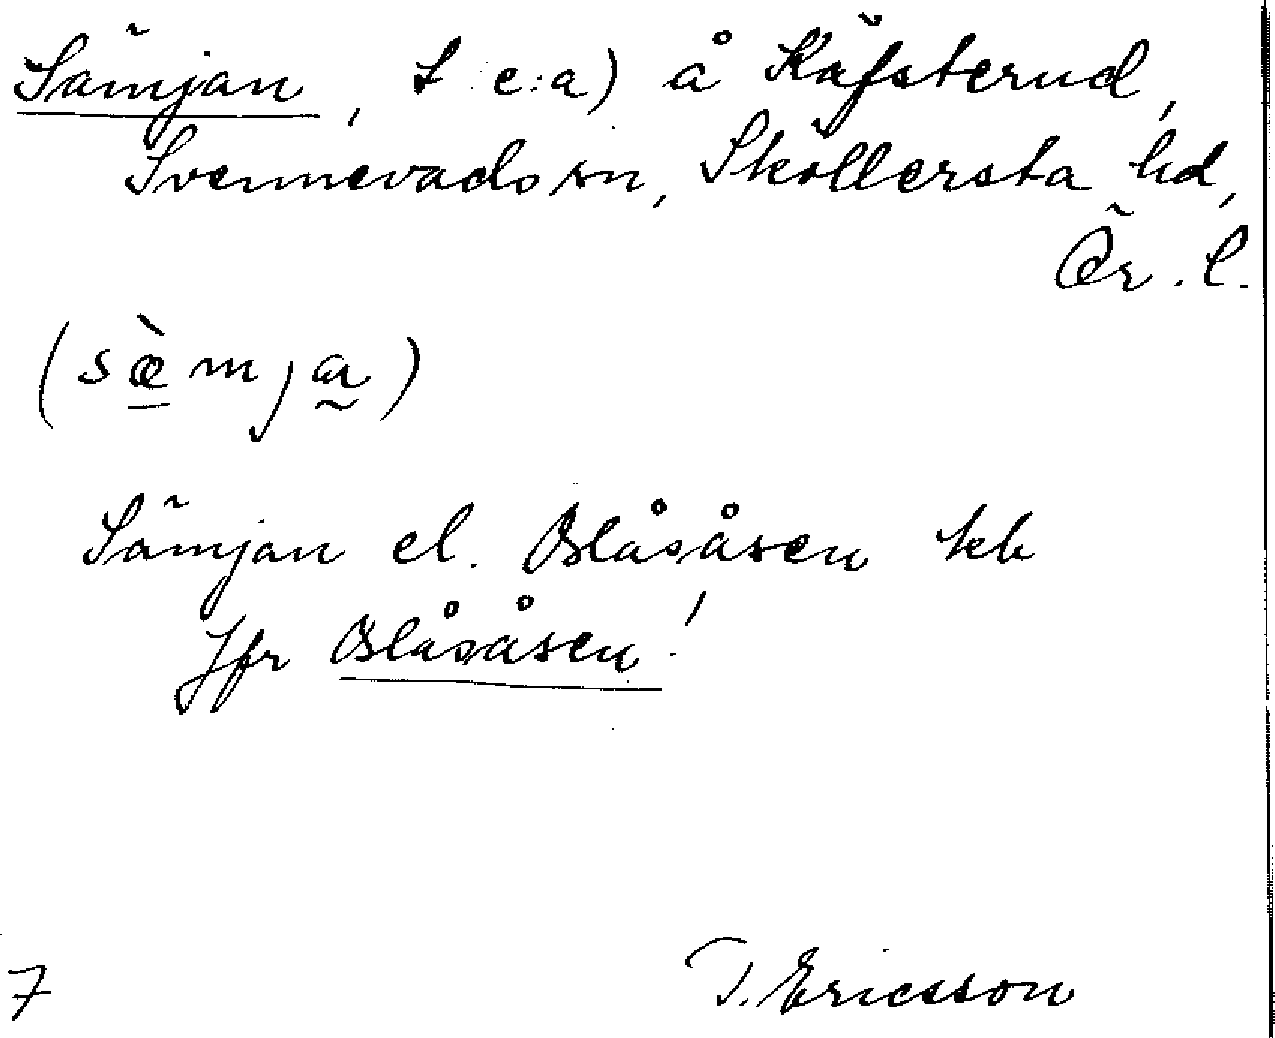 Sämjan, t e:a) å Käfsterud,
Svennevads sn, Sköllersta hd,
Ör. l.
(sæ̀mja)
Sämjan el. Blåsåsen kk
Jfr Blåsåsen!
7 T. Ericsson